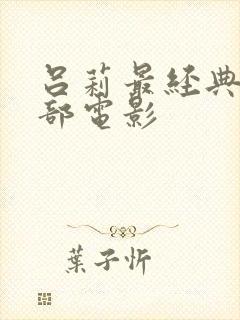 呂莉最經典
部電影
葉子忻